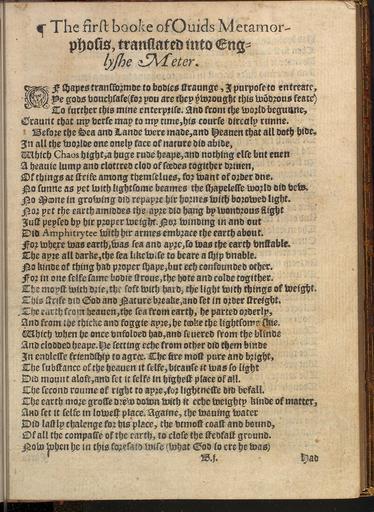 ¶ The first booke of Ouids Metamor-
phosis, translated into Eng-
lyshe Meter.
OF shapes transformde to bodies straunge, I purpose to entreate,
Ye gods vouchsafe (for you are they ywrought this wōdrous feate)
To further this mine enterprise. And from the world begunne,
Graunt that my verse may to my time, his course directly runne.
Before the Sea and Lande were made, and Heauen that all doth hide.
In all the worlde one onely face of nature did abide,
Which Chaos hight, a huge rude heape, and nothing else but euen
A heauie lump and clottred clod of seedes togither driuen,
Of things at strife among themselues, for want of order due.
No sunne as yet with lightsome beames the shapelesse world did vew.
No Moone in growing did repayre hir hornes with borowed light.
Nor yet the earth amiddes the ayre did hang by wondrous slight
Just peysed by hir proper weight. Nor winding in and out
Did Amphitrytee with hir armes embrace the earth about.
For where was earth, was sea and ayre, so was the earth vnstable.
The ayre all darke, the sea likewise to beare a ship vnable.
No kinde of thing had proper shape, but ech confounded other.
For in one selfe same bodie stroue, the hote and colde togither.
The moyst with drie, the soft with hard, the light with things of weight.
This strife did God and Nature breake, and set in order streight.
The earth from heauen, the sea from earth, he parted orderly,
And from the thicke and foggie ayre, he tooke the lightsome skie.
Which when he once vnfolded had, and seuered from the blinde
And clodded heape. He setting eche from other did them binde
In endlesse friendship to agree. The fire most pure and bright,
The substance of the heauen it selfe, bicause it was so light
Did mount aloft, and set it selfe in highest place of all.
The second roume of right to ayre, for lightnesse did befall.
The earth more grosse drew down with it eche weighty kinde of matter,
And set it selfe in lowest place. Againe, the wauing water
Did lastly chalenge for his place, the vtmost coast and bound,
Of all the compasse of the earth, to close the stedfast ground.
Now when he in this foresaid wise (what God so ere he was)
B.j.
Had